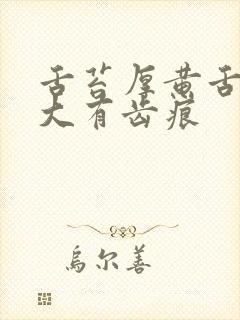 舌苔厚黄舌
大有齿痕
乌尔善